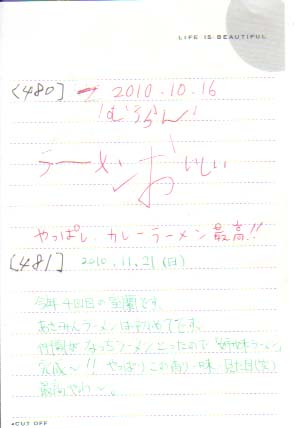 LIFE IS BEAUTIFUL
[480] 2010.10.16
むろらん
ラーメン おいしい
やっぱし カレーラーメン 最高!!
[481] 2010.11.21(日)
今年4回目の室蘭です。
ラーメンは初めてです。
なっちラーメンとったので 姉妹ラーメン
完成〜!! やっぱりこの香り・味・見た目(笑)
最高やわ〜。
CUT OFF